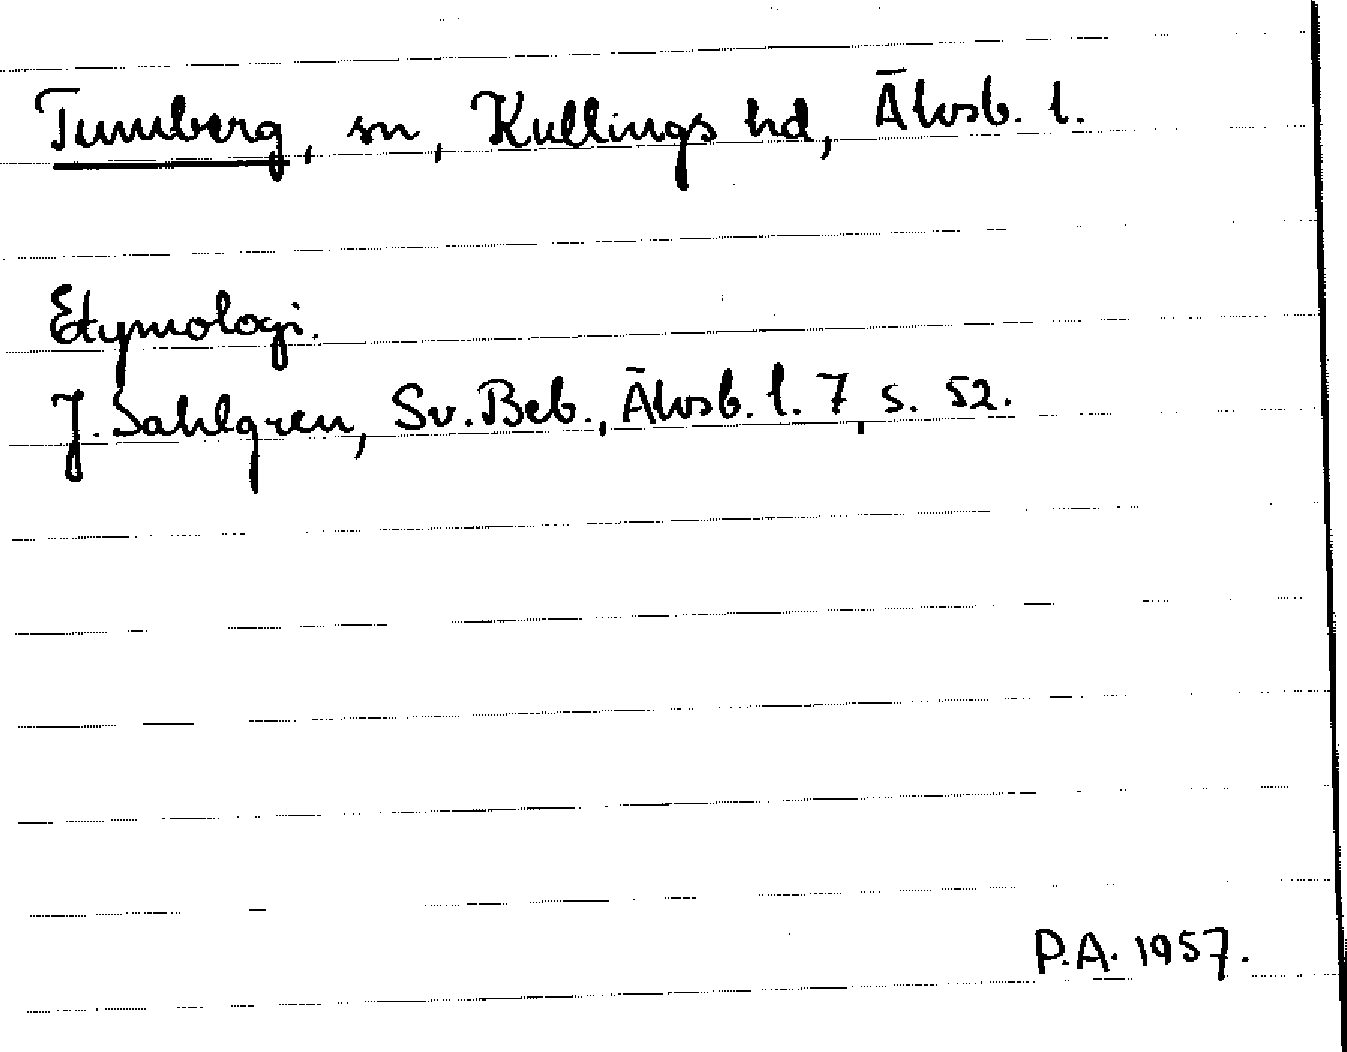 Tumberg, sn, Kullings hd, Älvsb. l.
Etymologi.
J. Sahlgren, Sv. Beb., Älvsb. l. 7, s. 52.
P.A. 1957.